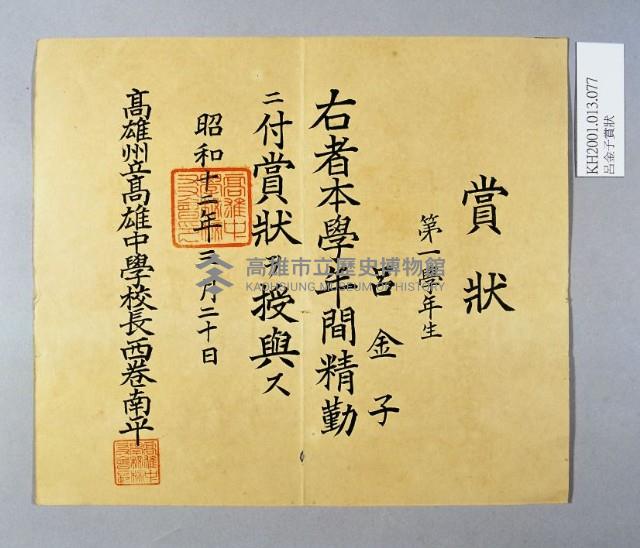 賞狀
第一學年生
呂金子
右者本學年間精勤
ニ付賞狀ヲ授與ス
昭和十二年三月二十日
高雄州立高雄中學校長西卷南平
高雄市立歷史博物館
KAOHSIUNG MUSEUM OF HISTORY
KH2001.013.077
呂金子賞狀